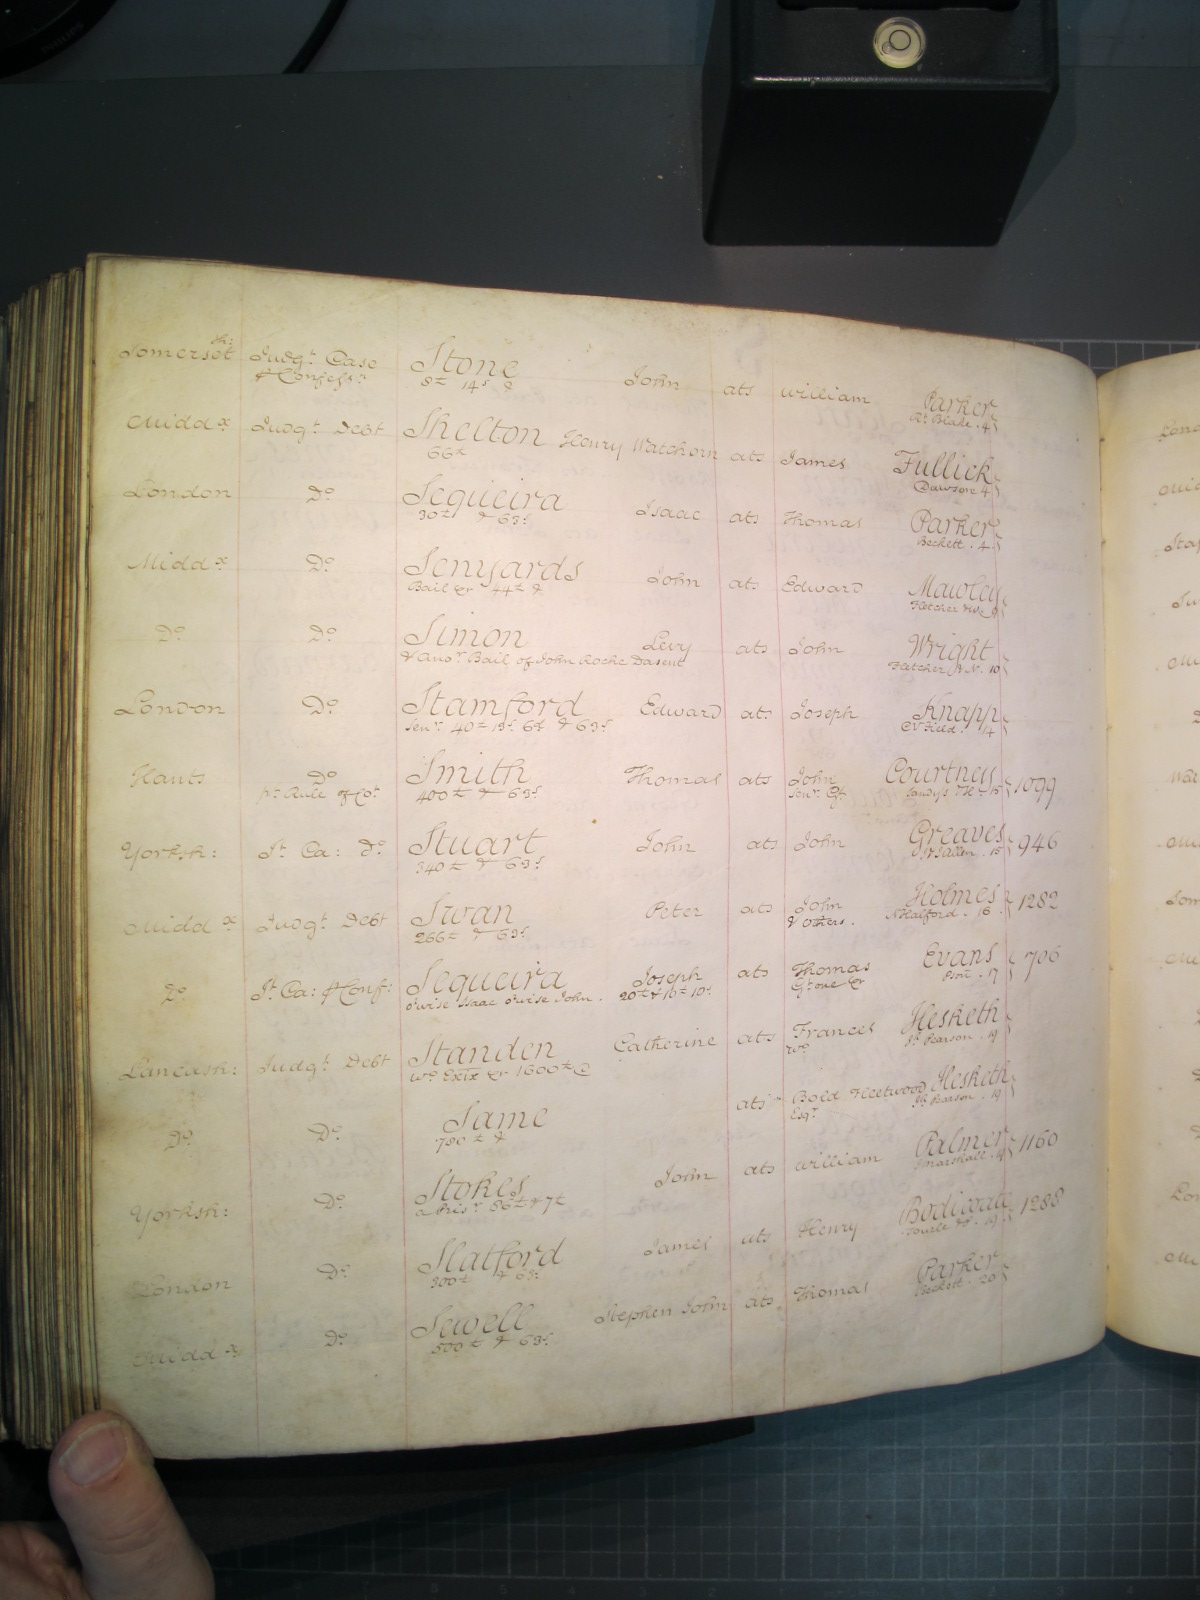 Somerset sh: Judgt. Case Stone John ats William Parker
& Confess: 8£ 14s & Rt. Blake . 4
Middx Judgt. Debt Shelton Henry Watchorn ats James Fullick
66£ Dawson 4
London Do. Sequeira Isaac ats Thomas Parker
30£ & 63s Beckett . 4
Middx Do. Senyards John ats Edward Mawley
Bail &c 44£ & Fletcher
Do. Do. Simon Levy ats John Wright
& Anor. Bail of John Roche Dasent Fletcher 10
London Do. Stamford Edward ats Joseph Knapp
Senr. 40£ 19s 6d & 63s Field . 14
Hants Do. Smith Thomas ats John Courtney 1099
pr. Rule of Cot. 400£ & 63s Senr. Gt. 15
Yorksh: Jt. Ca: Do. Stuart John ats John Greaves 946
340£ & 63s Allen . 15
Middx Judgt. Debt Swan Peter ats John Holmes 1282
266£ & 63s & others . Halford . 16
Do. Jt. Ca: & Conf: Sequeira Joseph ats Thomas Evans 706
o'wise Isaac o'wise John . 20£ & 16£ 10s Gt. one &c 17
Lancash: Judgt. Debt Standen Catherine ats Frances Hesketh
Wo. Exix &c 1600£ Wo. Pearson . 19
Do. Do. Same ats Bold Fleetwood Hesketh
780£ & Esqr. Pearson . 19
Yorksh: Do. Stokes John ats William Palmer 1160
a Prisr. 86£ & 7£ Marshall . 19
London Do. Slatford James ats Henry Bodicoate 1288
300£ & 63s Towle 19
Middx Do. Sewell Stephen John ats Thomas Parker
500£ & 63s Beckett . 20